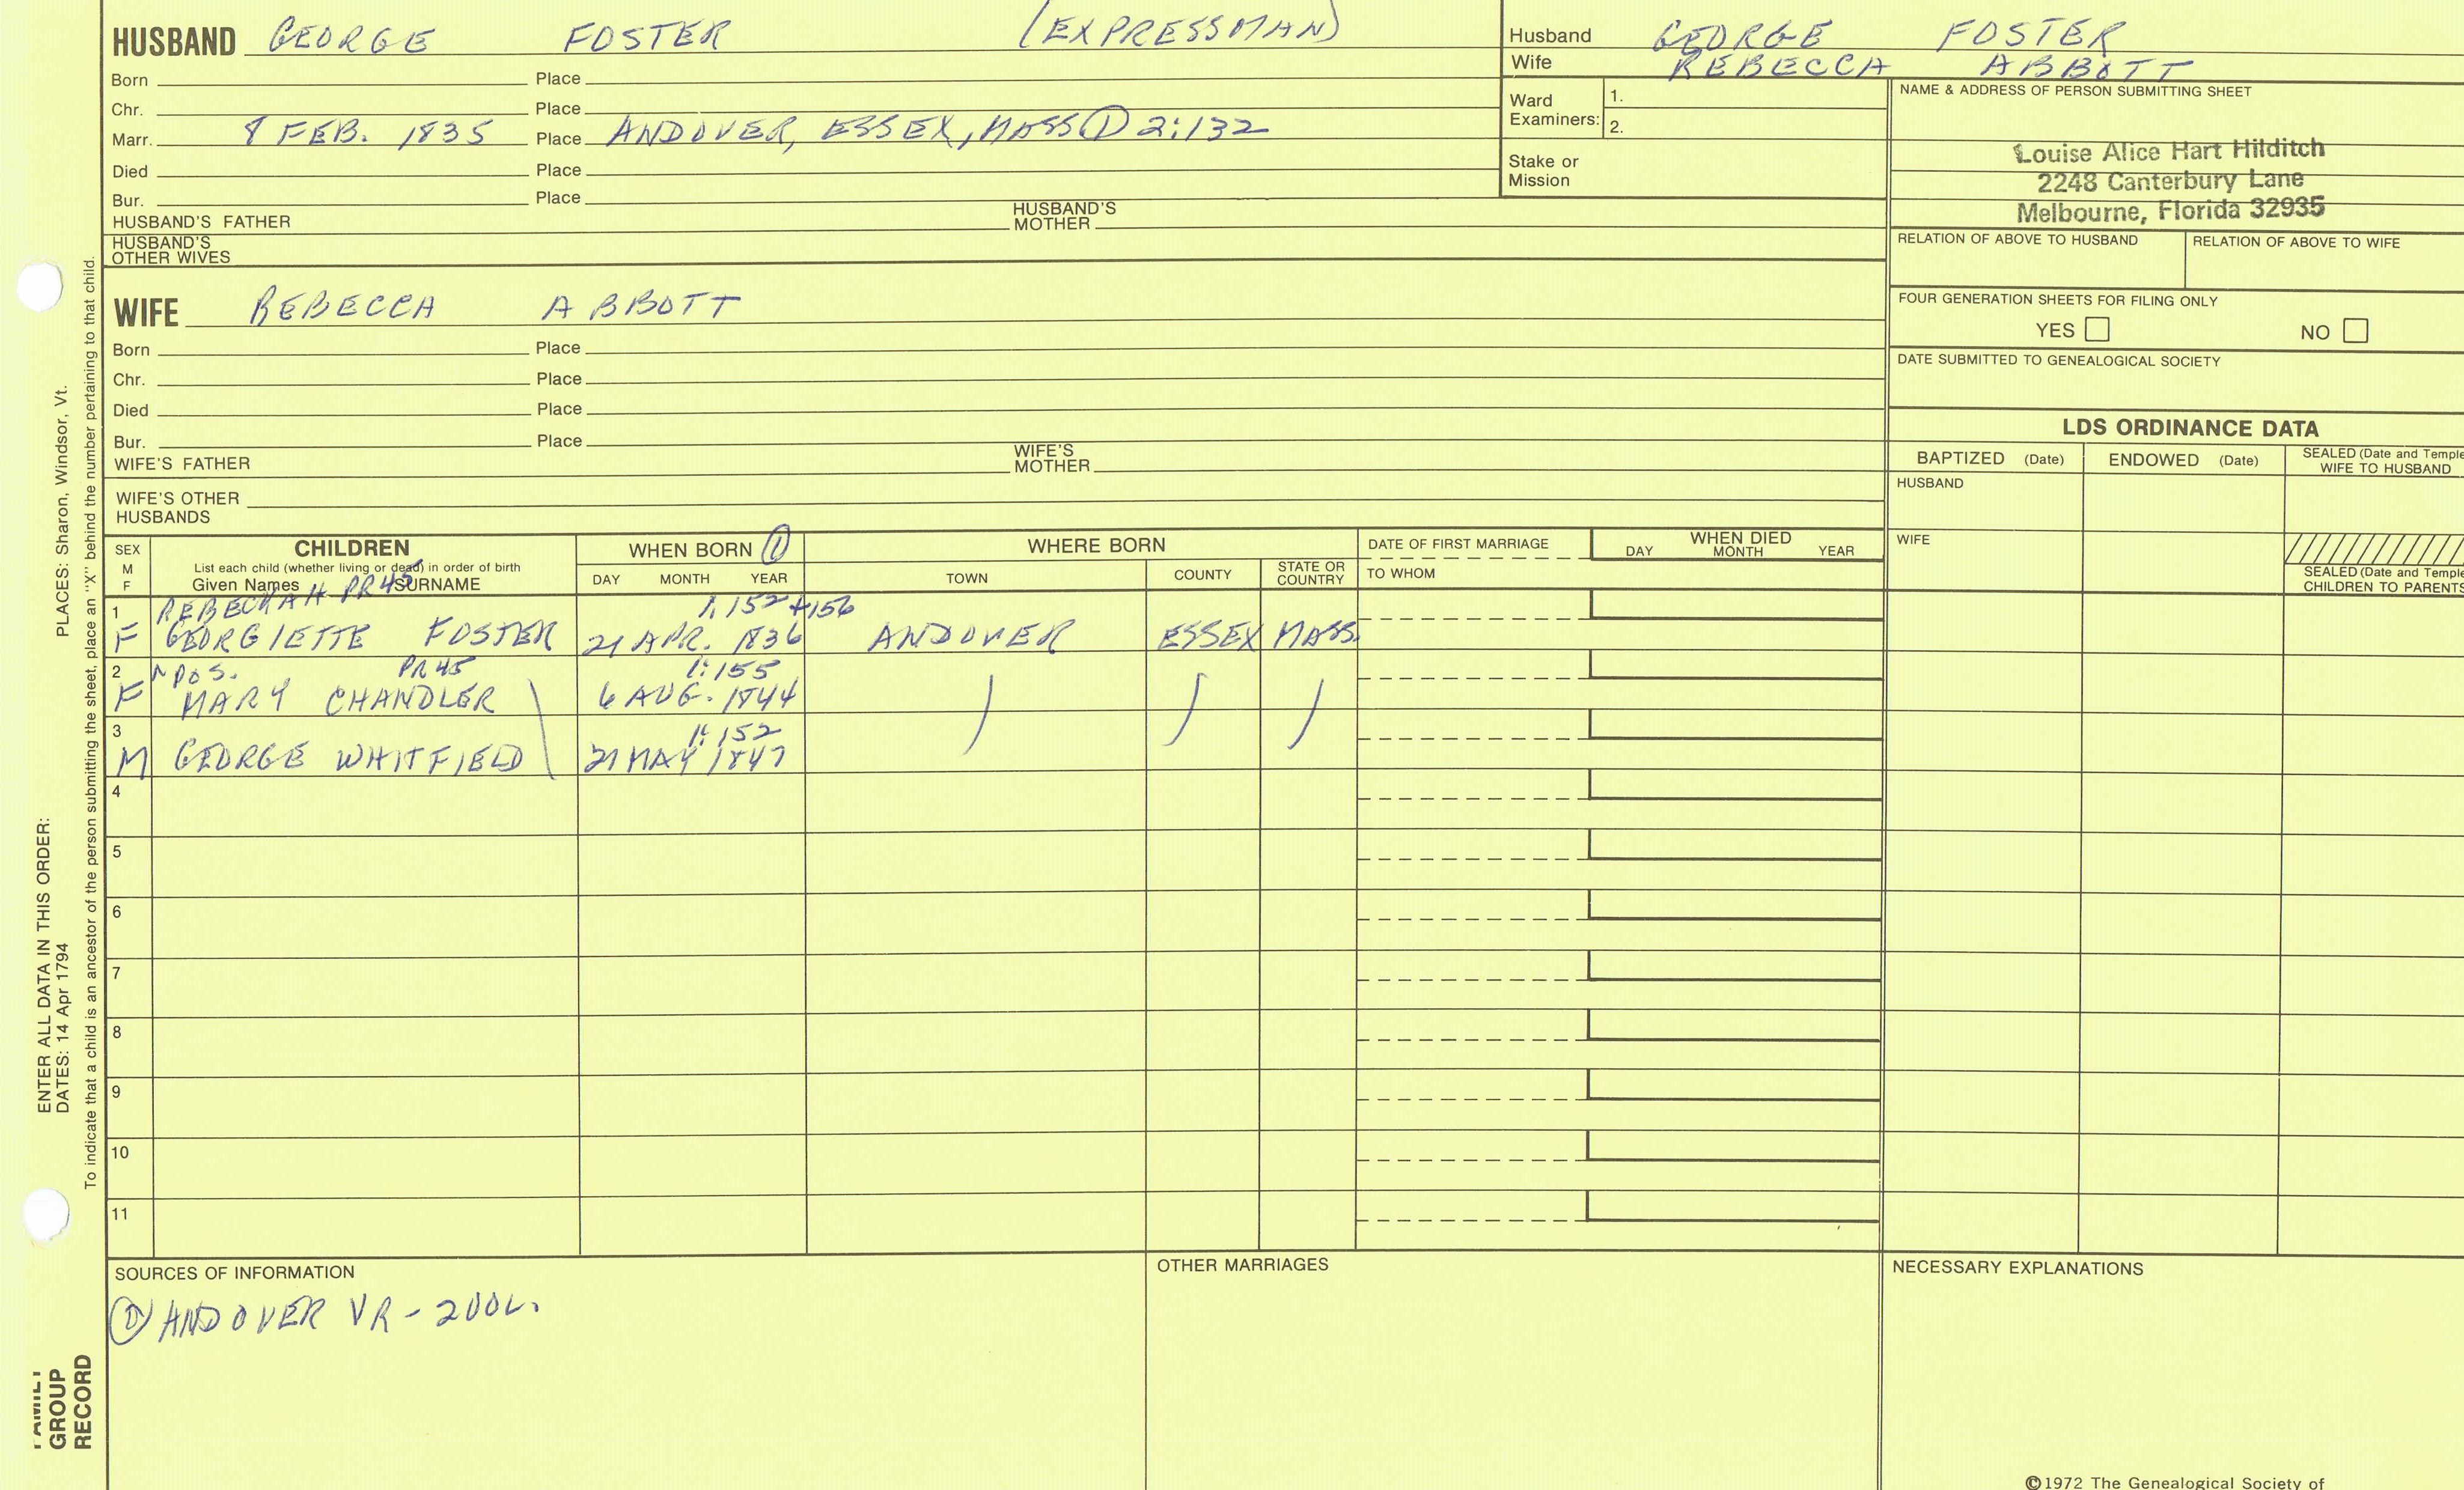 HUSBAND GEORGE FOSTER (EXPRESSMAN)
Born Place
Chr. Place
Marr. 8 FEB. 1835 Place ANDOVER, ESSEX, MASS ① 2:132
Died Place
Bur. Place
HUSBAND'S FATHER HUSBAND'S MOTHER
HUSBAND'S OTHER WIVES
Husband GEORGE FOSTER
Wife REBECCA ABBOTT
Ward Examiners: 1.
2.
Stake or Mission
NAME & ADDRESS OF PERSON SUBMITTING SHEET
Louise Alice Hart Hilditch
2248 Canterbury Lane
Melbourne, Florida 32935
RELATION OF ABOVE TO HUSBAND RELATION OF ABOVE TO WIFE
FOUR GENERATION SHEETS FOR FILING ONLY
YES NO
DATE SUBMITTED TO GENEALOGICAL SOCIETY
WIFE REBECCA ABBOTT
Born Place
Chr. Place
Died Place
Bur. Place
WIFE'S FATHER WIFE'S MOTHER
WIFE'S OTHER HUSBANDS
LDS ORDINANCE DATA
BAPTIZED (Date) ENDOWED (Date) SEALED (Date and Temple
WIFE TO HUSBAND
HUSBAND
WIFE
SEALED (Date and Temple
CHILDREN TO PARENTS
SEX M F
CHILDREN
List each child (whether living or dead) in order of birth
Given Names SURNAME
WHEN BORN ①
DAY MONTH YEAR
WHERE BORN
TOWN COUNTY STATE OR COUNTRY
DATE OF FIRST MARRIAGE
TO WHOM
WHEN DIED
DAY MONTH YEAR
1 REBECKAH PR45 1:152+156
F GEORGIETTE FOSTER 21 APR. 1836 ANDOVER ESSEX MASS.
2 POS. PR45 1:155
F MARY CHANDLER 6 AUG. 1844
3 1:152
M GEORGE WHITFIELD 21 MAY 1847
4
5
6
7
8
9
10
11
SOURCES OF INFORMATION
① ANDOVER VR - 2VOL.
OTHER MARRIAGES
NECESSARY EXPLANATIONS
©1972 The Genealogical Society of
ENTER ALL DATA IN THIS ORDER:
DATES: 14 Apr 1794 PLACES: Sharon, Windsor, Vt.
To indicate that a child is an ancestor of the person submitting the sheet, place an "X" behind the number pertaining to that child.
FAMILY
GROUP
RECORD